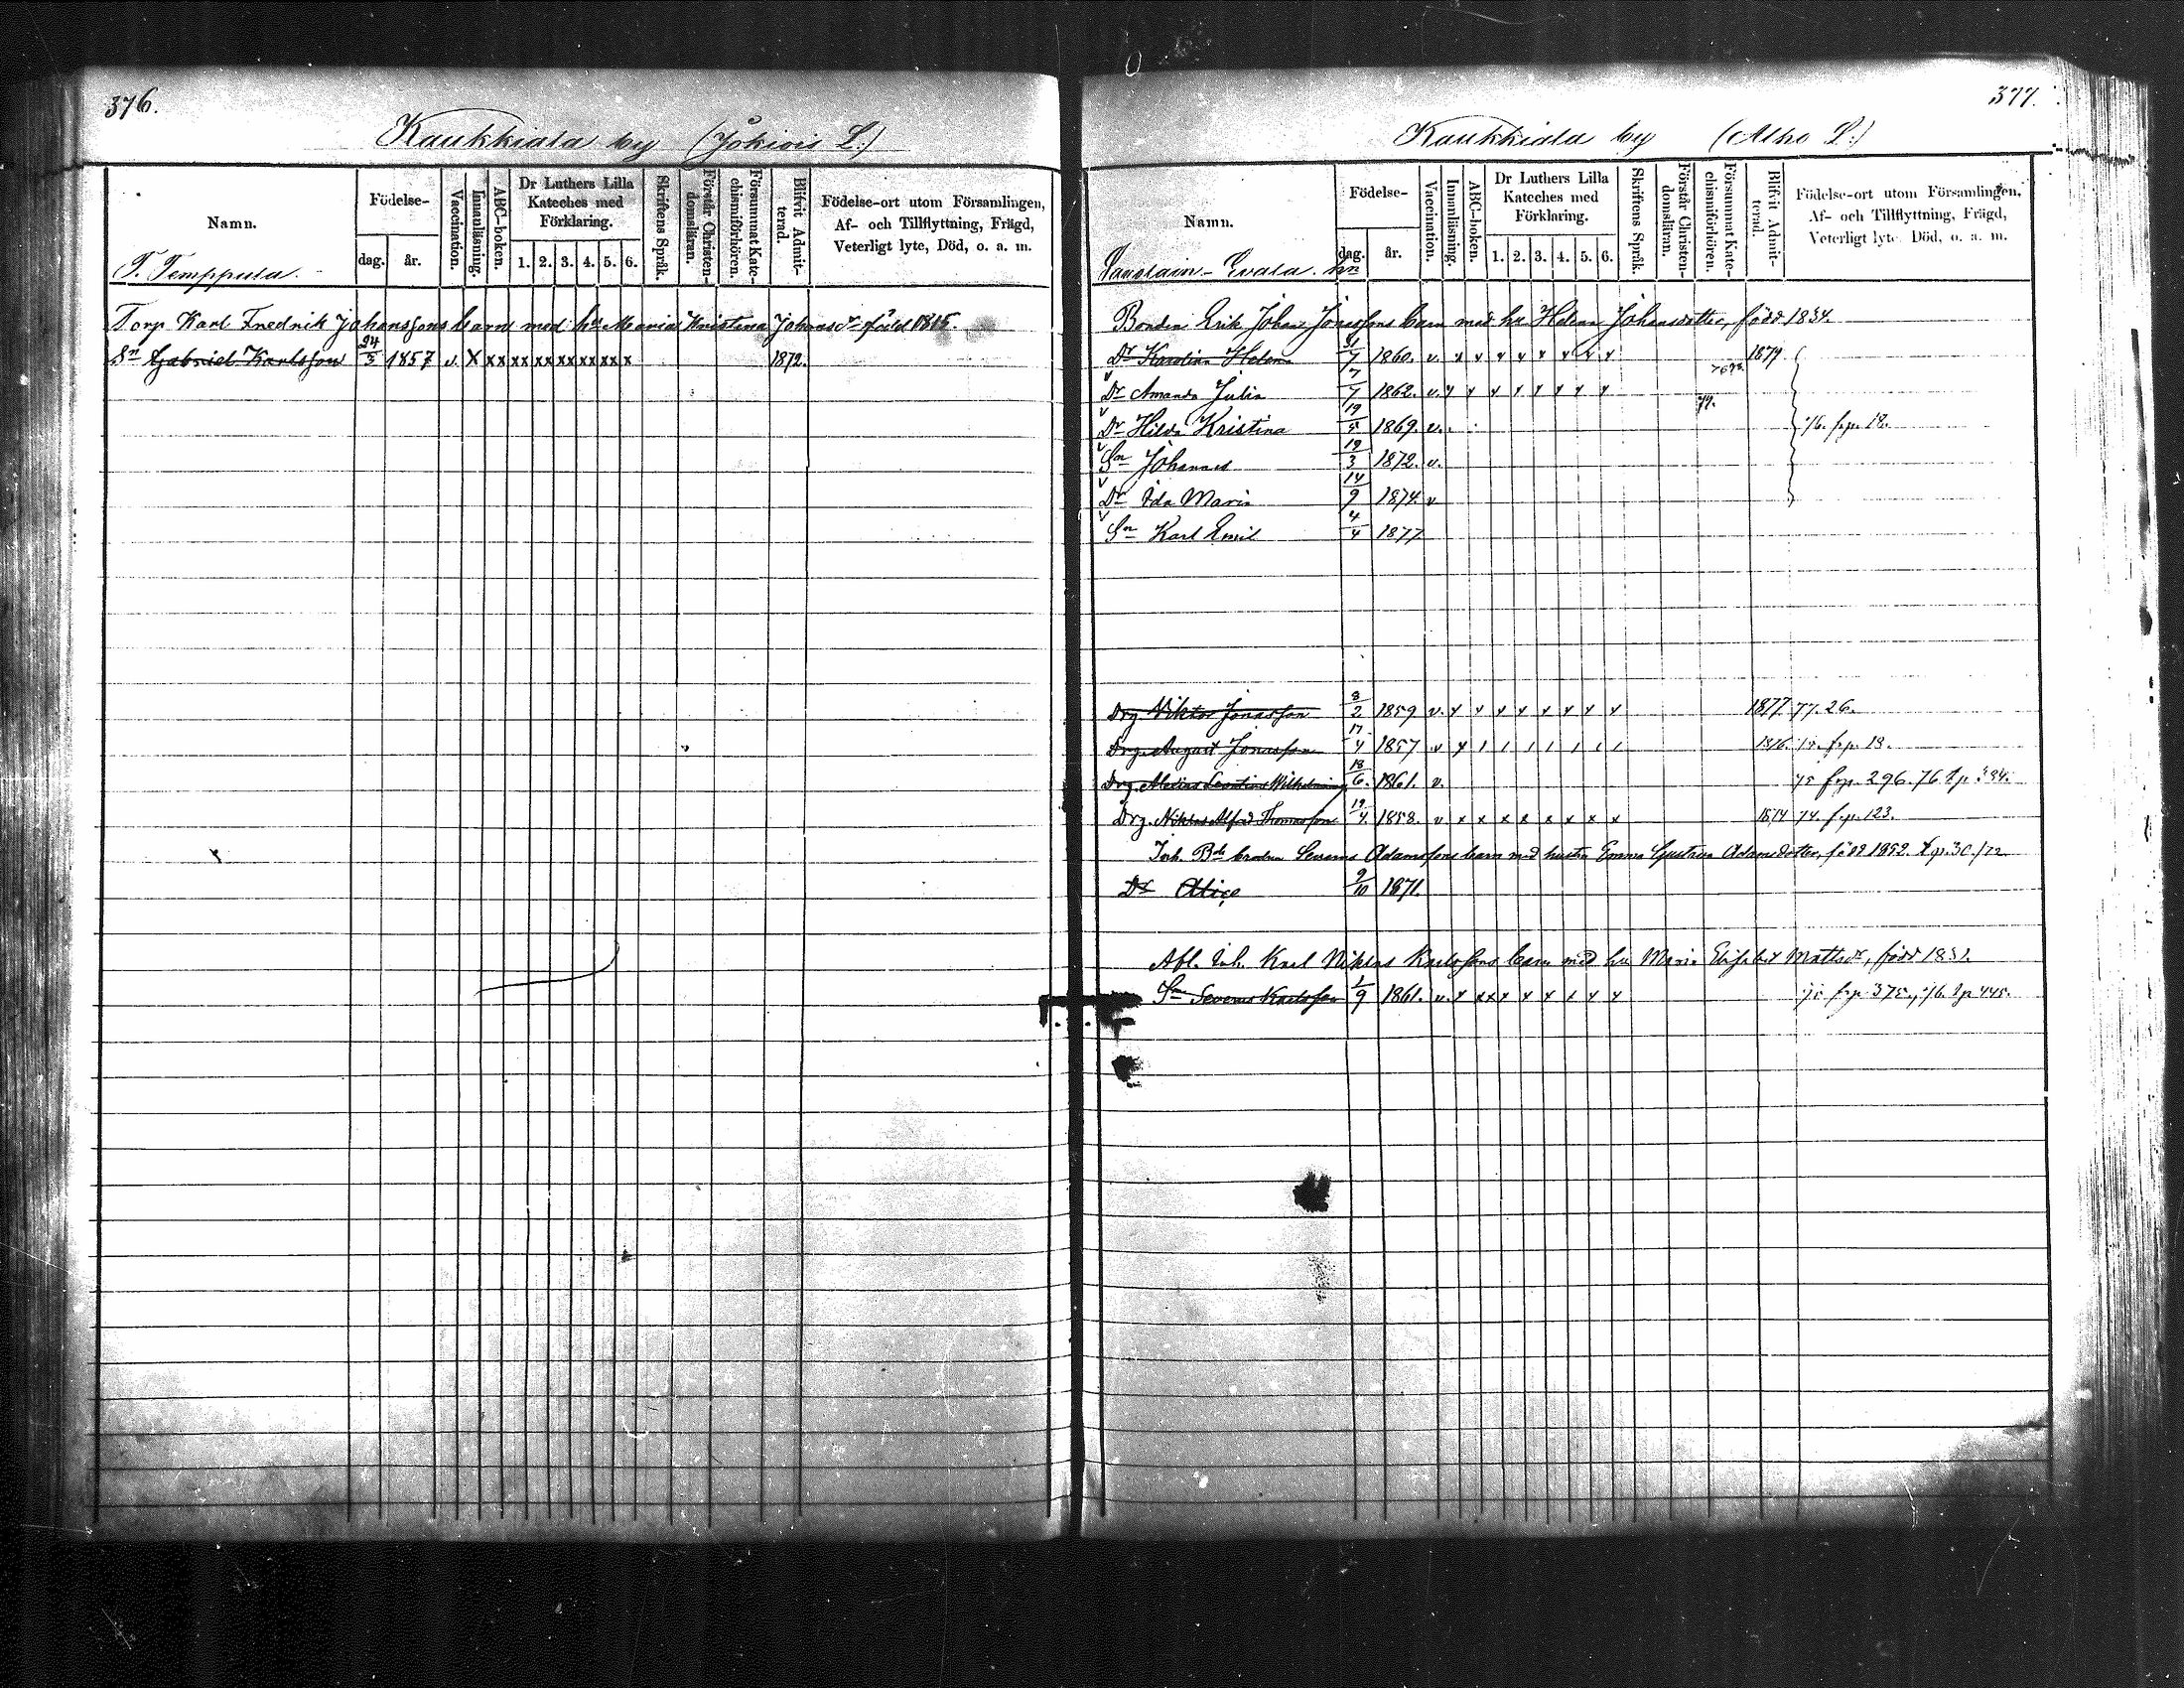 376.
Kaukkiala by (Jokiois L.)
Namn.
Födelse-
dag. år.
Vaccination.
Innanläsning.
ABC-boken.
Dr Luthers Lilla Kateches med Förklaring.
1. 2. 3. 4. 5. 6.
Skriftens Språk.
Förstår Christendomsläran.
Försummat Katechismiförhören.
Blifvit Admitterad.
Födelse-ort utom Församlingen, Af- och Tillflyttning, Frägd, Veterligt lyte, Död, o. a. m.
T. Temppula.
Torp. Karl Fredrik Johanssons barn med hu Maria Kristina Johansdr född 1815.
Sn Gabriel Karlsson 24/3 1857 v. X xx xx xx xx xx xx x 1872.
377.
Kaukkiala by (Alho L.)
Namn.
Födelse-
dag. år.
Vaccination.
Innanläsning.
ABC-boken.
Dr Luthers Lilla Kateches med Förklaring.
1. 2. 3. 4. 5. 6.
Skriftens Språk.
Förstår Christendomsläran.
Försummat Katechismiförhören.
Blifvit Admitterad.
Födelse-ort utom Församlingen, Af- och Tillflyttning, Frägd, Veterligt lyte, Död, o. a. m.
Evala hn
Bonden Erik Johan Jonassons barn med hu Helena Johansdotter, född 1834.
Dr Karolina Helena 31/7 1860. v. x x x x x x x x 1877.
Dr Amanda Julia 7/7 1862. v. x x x x x x x x
Dr Hilda Kristina 19/5 1869. v. 76. frp. 18.
Sn Johannes 19/3 1872. v.
Dr Ida Maria 14/9 1874. v
Sn Karl Emil 4/4 1877
Drg Viktor Jonasson 8/2 1859 v. x x x x x x x x 1877 77. 26.
Drg. August Jonasson 17/4 1857 v x / / / / / / / 1876. frp. 18.
18/6. 1861. v. 75 frp. 296. 76 tp
Drg. Niklas Alfred Thomasson 19/4. 1858. v x x x x x x x x 1874 74. frp. 123.
Inh. Bds broder Severus Adamssons barn med hustru Emma Gustava Adamsdotter, född 1852. tp. 30./72
Dr Alice 9/10 1871.
Afl. Inh. Karl Niklas Karlssons barn med hu Maria Elisabet Mattsdr, född 1831.
Sn Severus Karlsson 1/9 1861. v. x xx x x x x x x 75 frp. 375., 76. tp 445.